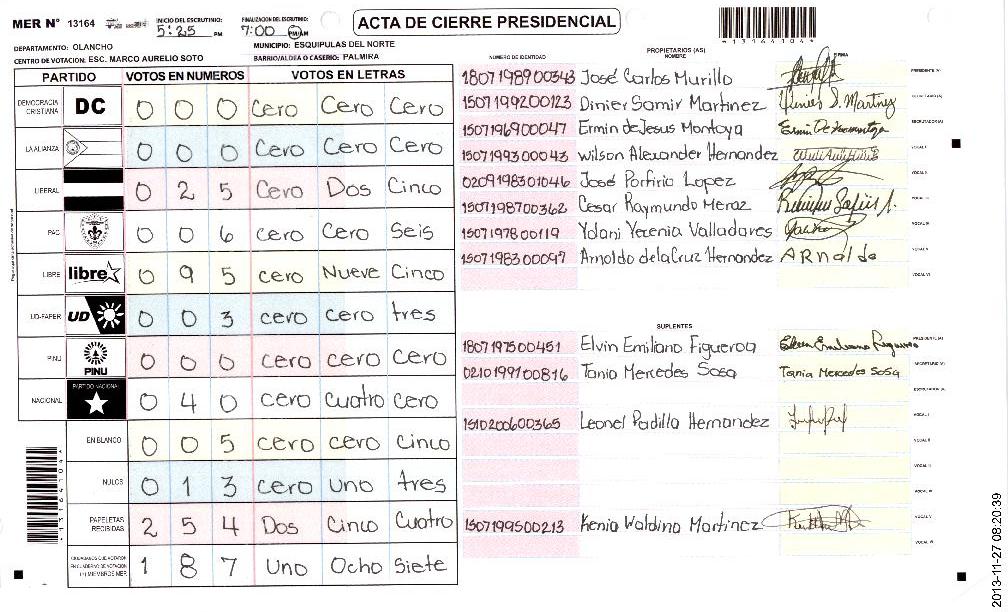 MER N° 13164
INICIO DEL ESCRUTINIO: 5:25 PM
FINALIZACION DEL ESCRUTINIO: 7:00 AM/PM
ACTA DE CIERRE PRESIDENCIAL
13164104
DEPARTAMENTO: OLANCHO
MUNICIPIO: ESQUIPULAS DEL NORTE
CENTRO DE VOTACION: ESC. MARCO AURELIO SOTO
BARRIO/ALDEA O CASERIO: PALMIRA
PARTIDO VOTOS EN NUMEROS VOTOS EN LETRAS
DEMOCRACIA CRISTIANA DC 0 0 0 Cero Cero Cero
LA ALIANZA 0 0 0 Cero Cero Cero
LIBERAL 0 2 5 Cero Dos Cinco
PAC 0 0 6 Cero Cero Seis
LIBRE libre 0 9 5 cero Nueve Cinco
UD-FAPER UD 0 0 3 cero cero tres
PINU PINU 0 0 0 cero cero cero
NACIONAL PARTIDO NACIONAL 0 4 0 cero cuatro cero
EN BLANCO 0 0 5 cero cero cinco
NULOS 0 1 3 cero uno tres
PAPELETAS RECIBIDAS 2 5 4 Dos Cinco Cuatro
CIUDADANOS QUE VOTARON EN CUADERNO DE VOTACION (+) MIEMBROS MER 1 8 7 Uno Ocho Siete
PROPIETARIOS (AS)
NUMERO DE IDENTIDAD NOMBRE FIRMA
1807198900343 José Carlos Murillo PRESIDENTE (A)
1507199200123 Dinier Samir Martinez SECRETARIO (A)
1507196900047 Ermin de Jesus Montoya ESCRUTADOR (A)
1507199300043 Wilson Alexander Hernandez VOCAL I
0209198301046 José Porfirio Lopez VOCAL II
1507198700362 Cesar Raymundo Meraz VOCAL III
1507197800119 Yolani Yecenia Valladares VOCAL IV
1507198300097 Arnoldo dela Cruz Hernandez ARNoldo VOCAL V
VOCAL VI
SUPLENTES
1807197500451 Elvin Emiliano Figueroa Elvin Emiliano Figueroa PRESIDENTE (A)
0210199100816 Tania Mercedes Sosa Tania Mercedes Sosa SECRETARIO (A)
ESCRUTADOR (A)
1510200600365 Leonel Padilla Hernandez VOCAL I
VOCAL II
VOCAL III
VOCAL IV
1507199500213 Kenia Waldina Martinez VOCAL V
VOCAL VI
13164104
2013-11-27 08:20:39